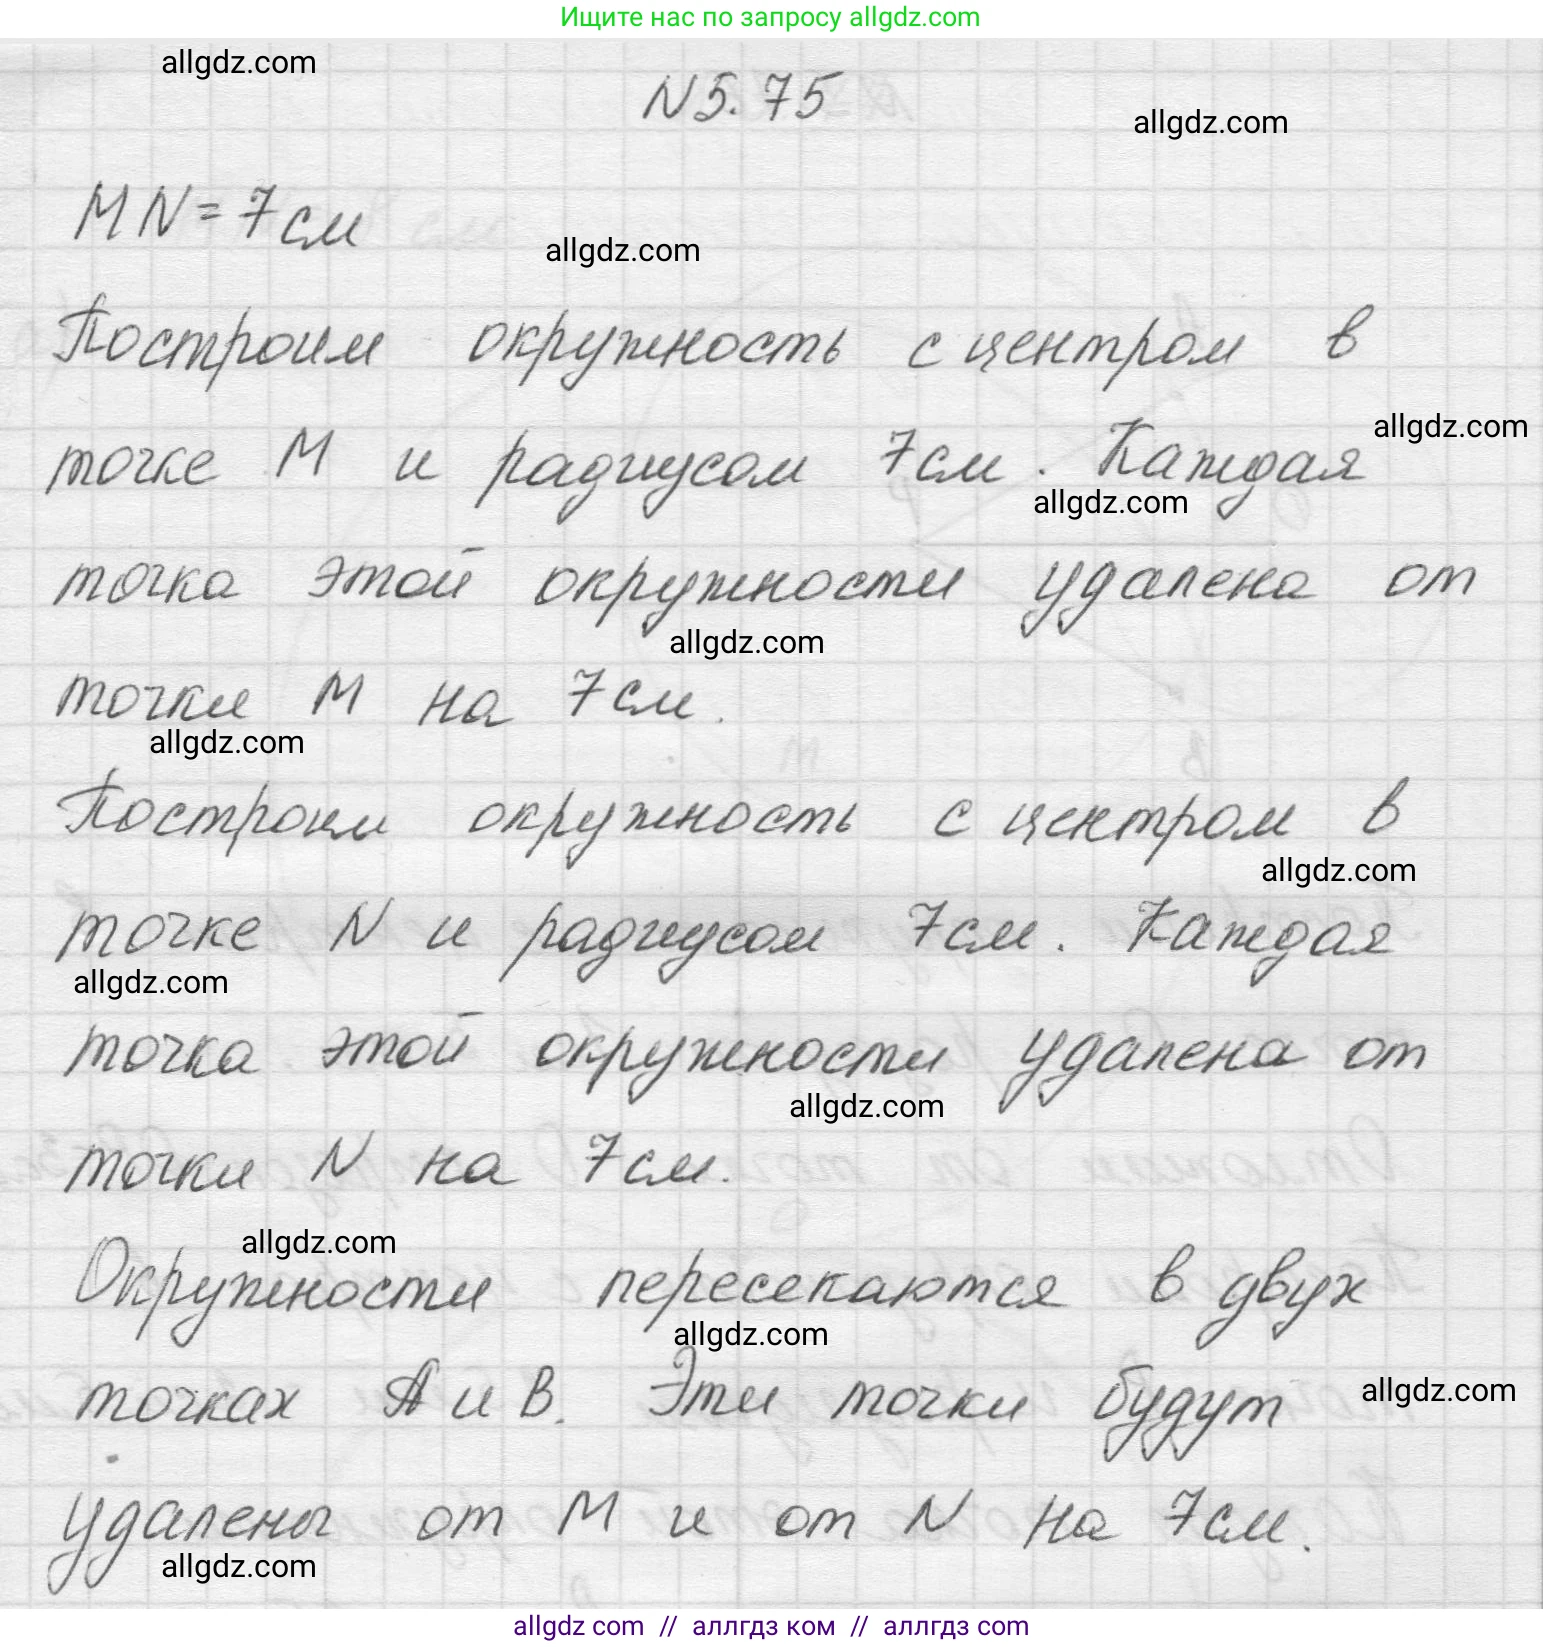 Ищите нас по запросу allgdz.com
allgdz.com
N5.75
allgdz.com
MN=7см
allgdz.com
Построим окружность с центром в
allgdz.com
точке M и радиусом 7см. Каждая
allgdz.com
точка этой окружности удалена от
allgdz.com
точки M на 7см.
allgdz.com
Построим окружность с центром в
allgdz.com
точке N и радиусом 7см. Каждая
allgdz.com
точка этой окружности удалена от
allgdz.com
точки N на 7см.
allgdz.com
Окружности пересекаются в двух
allgdz.com
точках A и B. Эти точки будут
allgdz.com
удалены от M и от N на 7см.
allgdz.com
allgdz com // аллгдз ком // аллгдз com